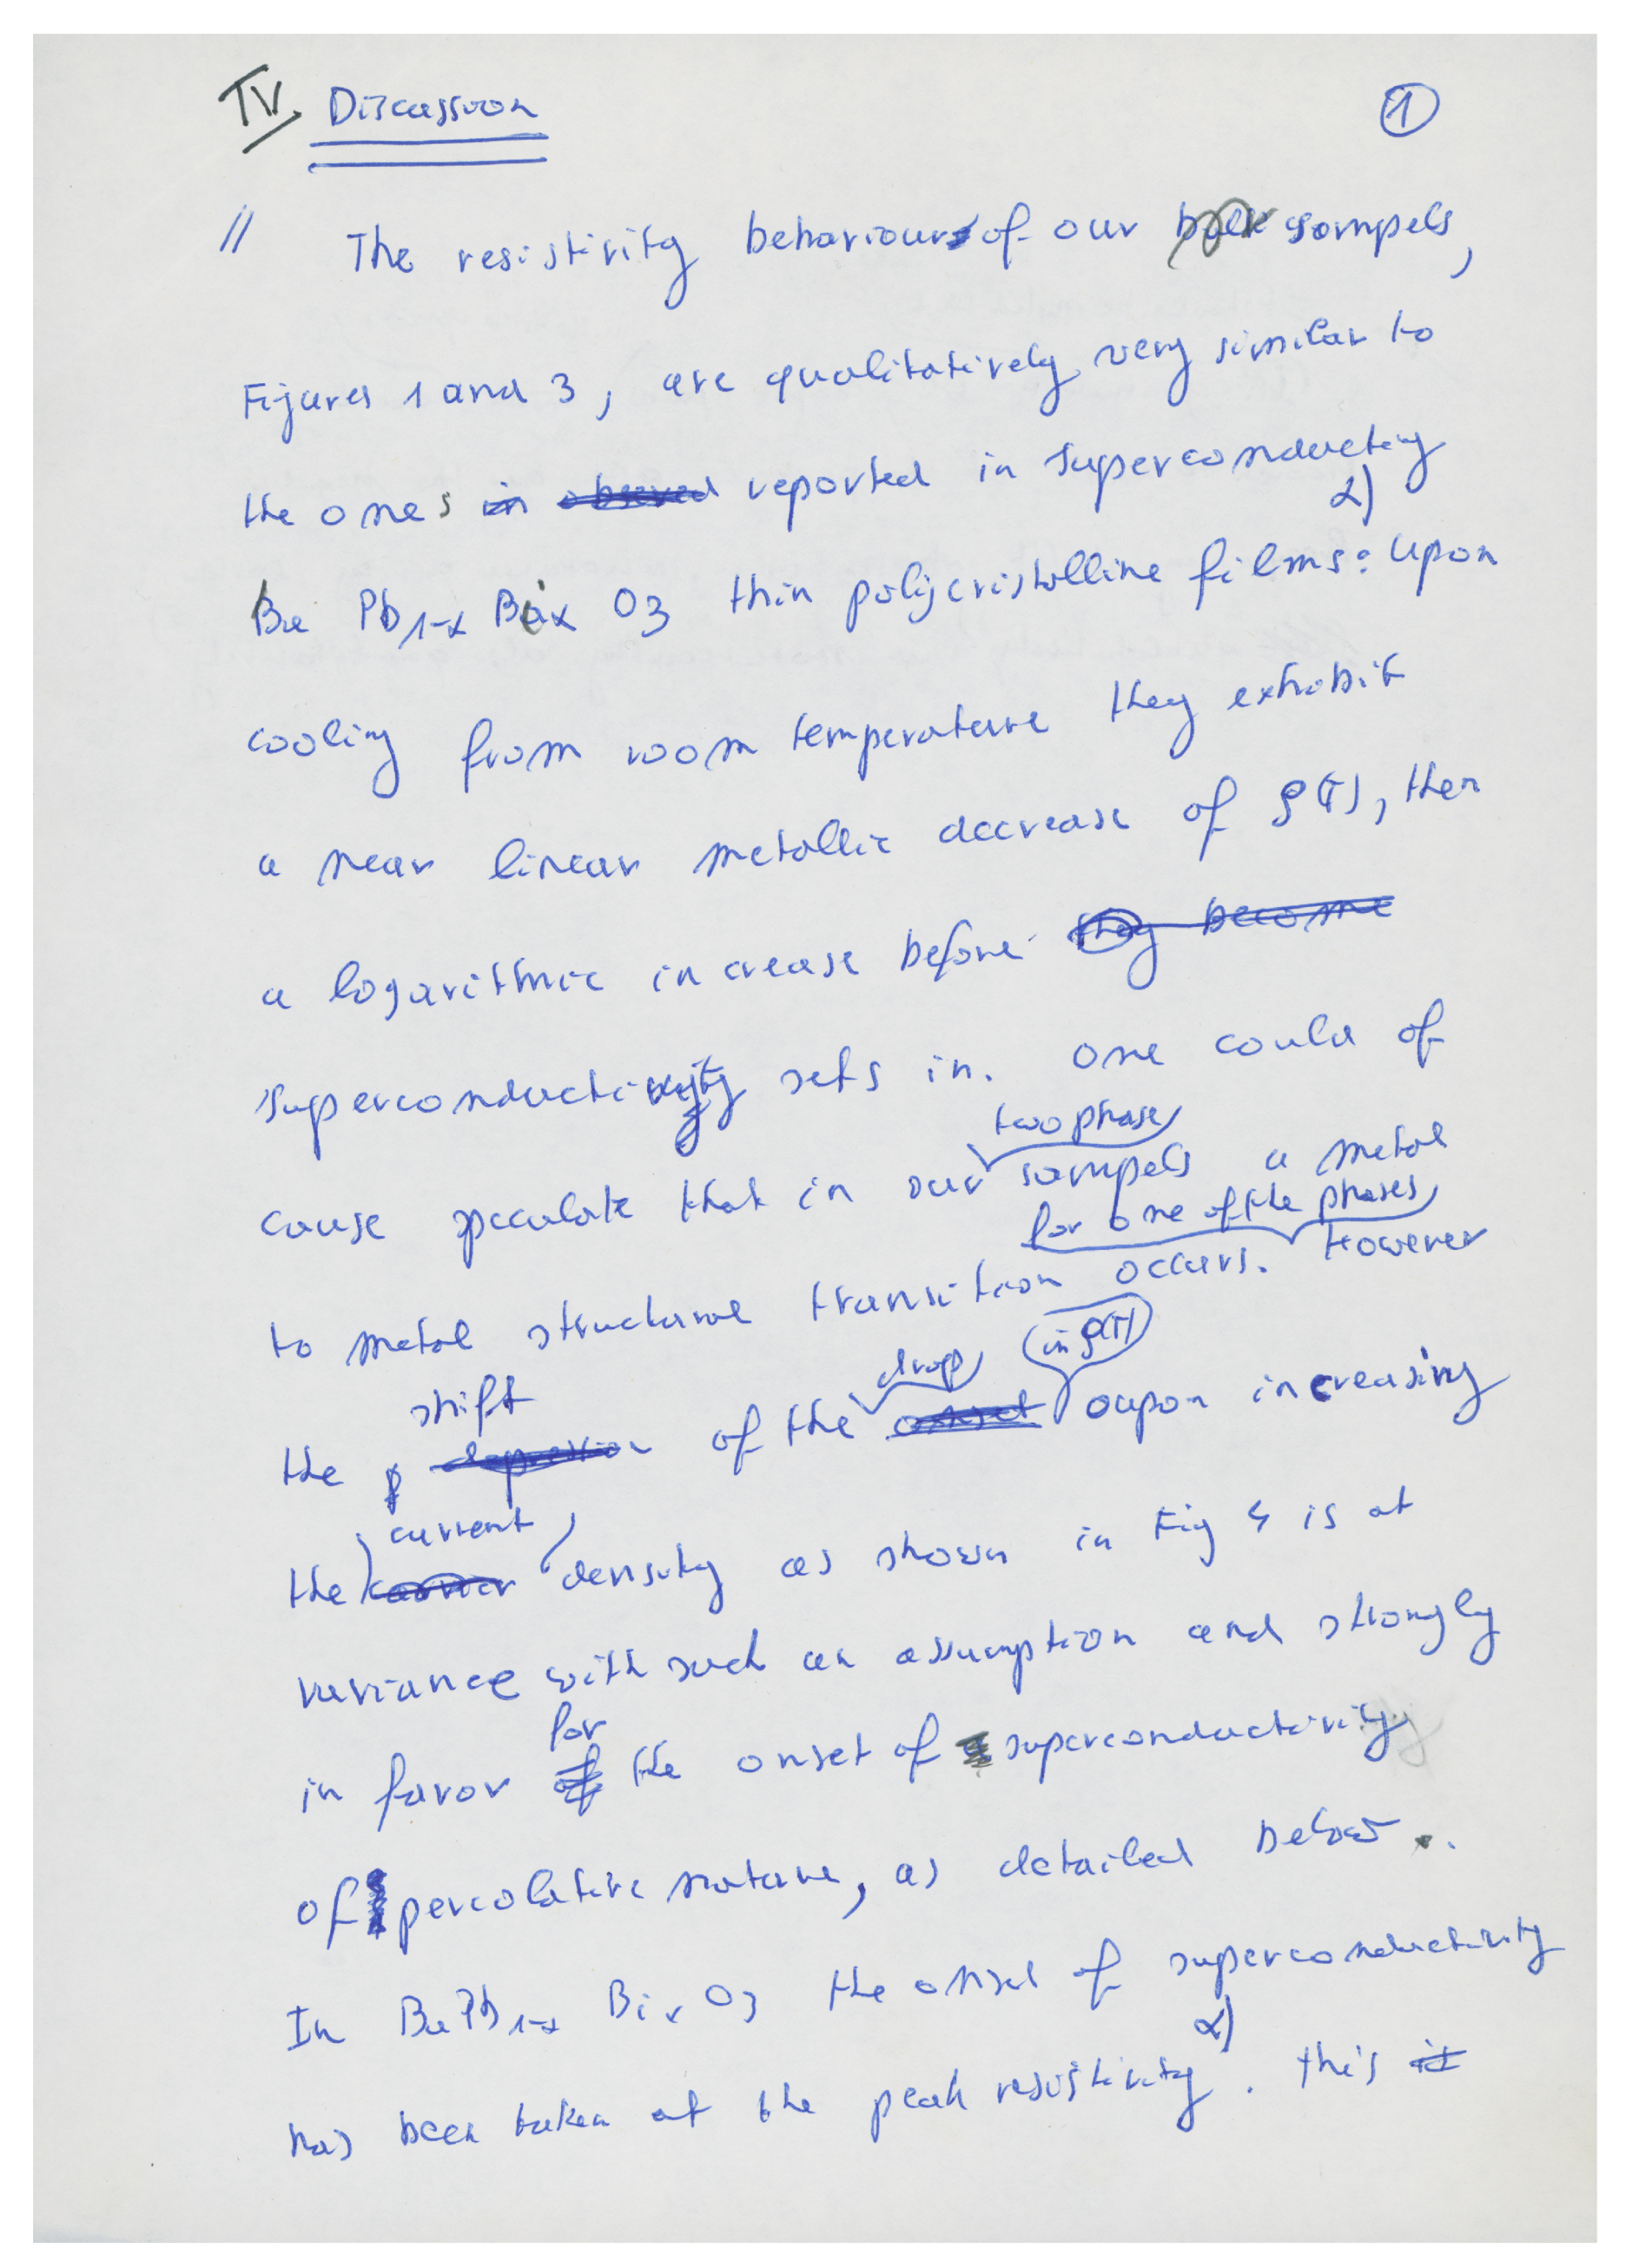 IV. Discussion
1
// The resistivity behaviour of our bulk sampels,
Figures 1 and 3, are qualitatively very similar to
the ones in observed reported in superconducting
α)
Ba Pb1-x Bix O3 thin polycristalline films: Upon
cooling from room temperature they exhibit
a near linear metallic decrease of ρ(T), then
a logarithmic increase before they become
superconductivity sets in. One could of
two phase
cause speculate that in our sampels a metal
for one of the phases
to metal structural transition occurs. However
drop in ρ(T)
shift
the depression of the onset oupon increasing
current
the carrier density as shown in Fig 4 is at
variance with such an assumption and strongly
for
in favor of the onset of superconductivity
of percolative nature, as detailed below.
In BaPb1-x Bix O3 the onset of superconductivity
α)
has been taken at the peak resistivity. this it